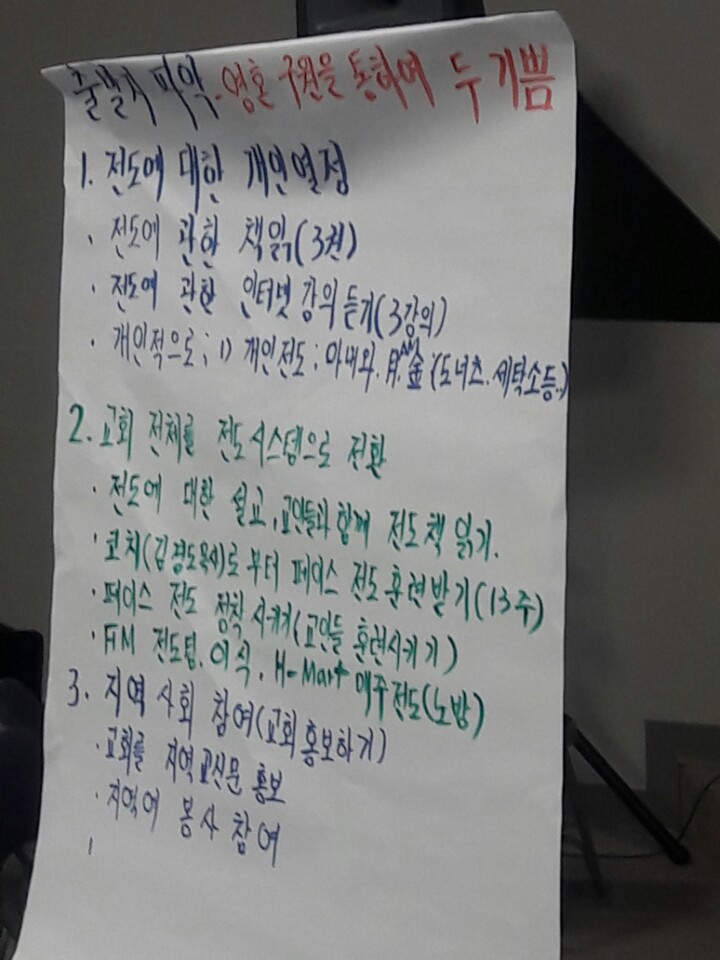 출발지 파악 - 영혼 구원을 통하여 두 기쁨
1. 전도에 대한 개인열정
· 전도에 관한 책읽(3권)
· 전도에 관한 인터넷 강의 듣기(3강의)
· 개인적으로; 1) 개인전도; 아내와. 月. 金 AM (도너츠. 세탁소등..)
2. 교회 전체를 전도시스템으로 전환
· 전도에 대한 설교, 교인들과 함께 전도책 읽기.
· 코치(김경도목사)로 부터 페이스 전도 훈련받기(13주)
· 페이스 전도 정착시키기(교인들 훈련시키기)
· 전도팀. 이식. H-Mart 매주전도(노방)
3. 지역 사회 참여(교회홍보하기)
· 교회를 지역 교신문 홍보
· 지역에 봉사 참여